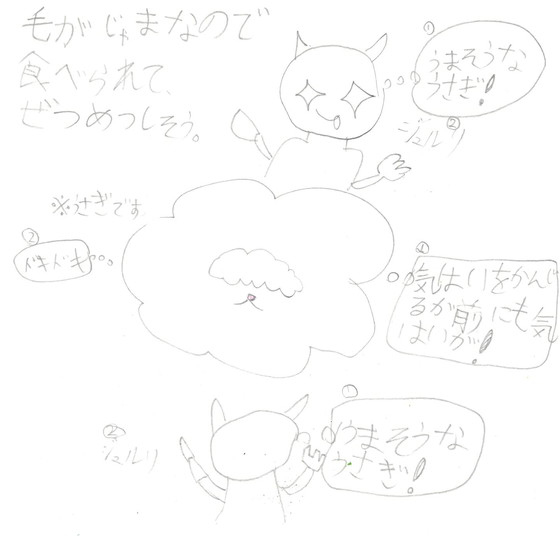 毛がじゃまなので
食べられて、
ぜつめつしそう。
①
うまそうな
うさぎ!
②
ジュルリ
※うさぎです
②
ドキドキ
①
気はいをかんじ
るが前にも気
はいが!
①
うまそうな
うさぎ!
②
ジュルリ